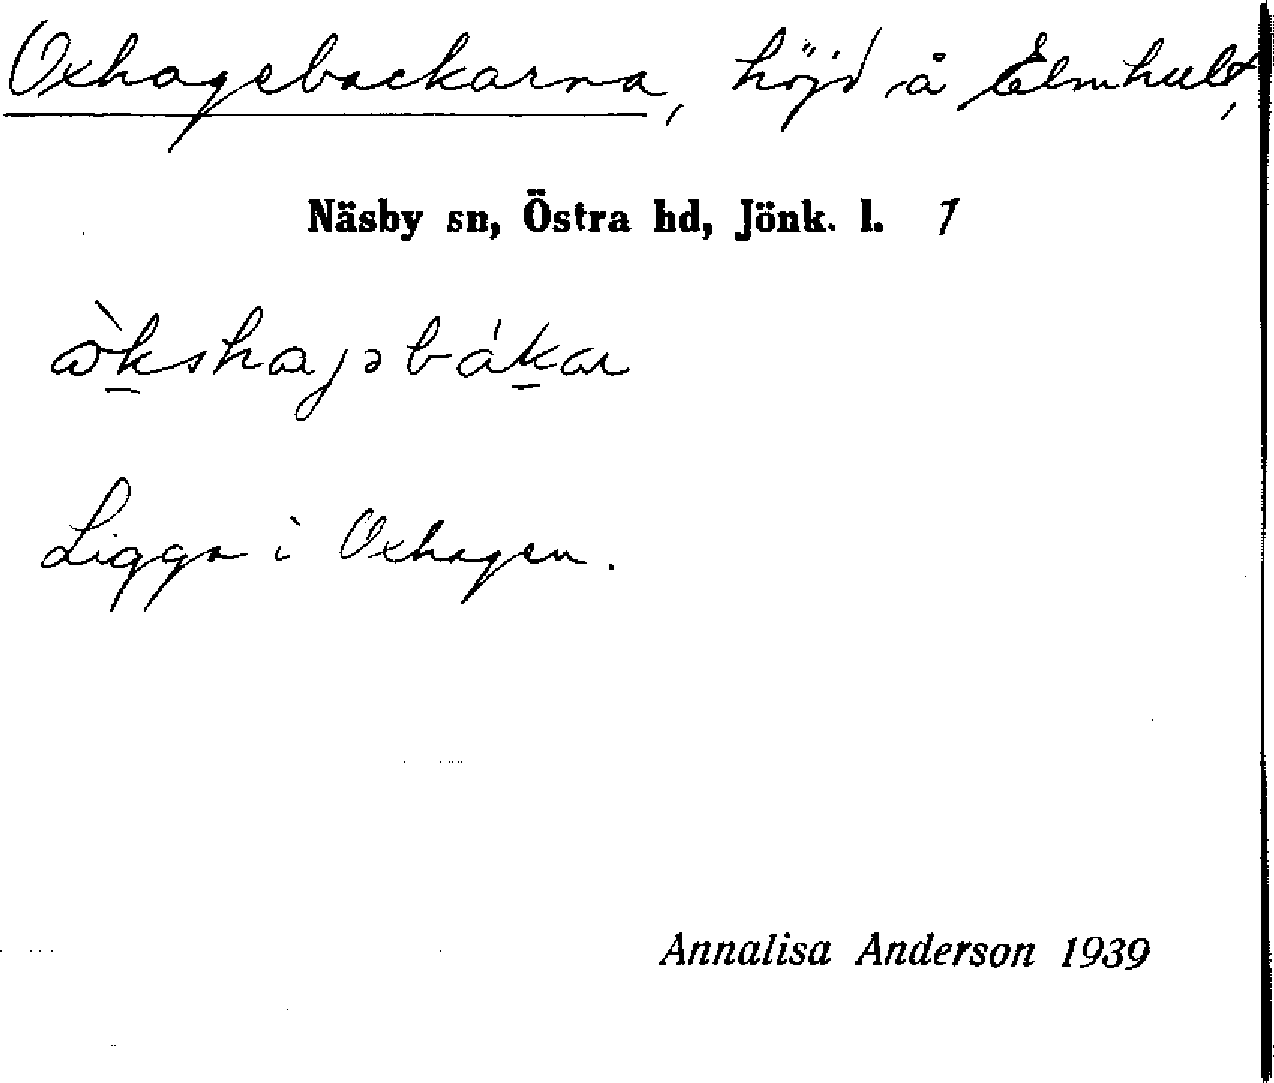 Oxhagebackarna, höjd å Elmhult,
Näsby sn, Östra hd, Jönk. l. 1
Ligga i Oxhagen.
Annalisa Anderson 1939